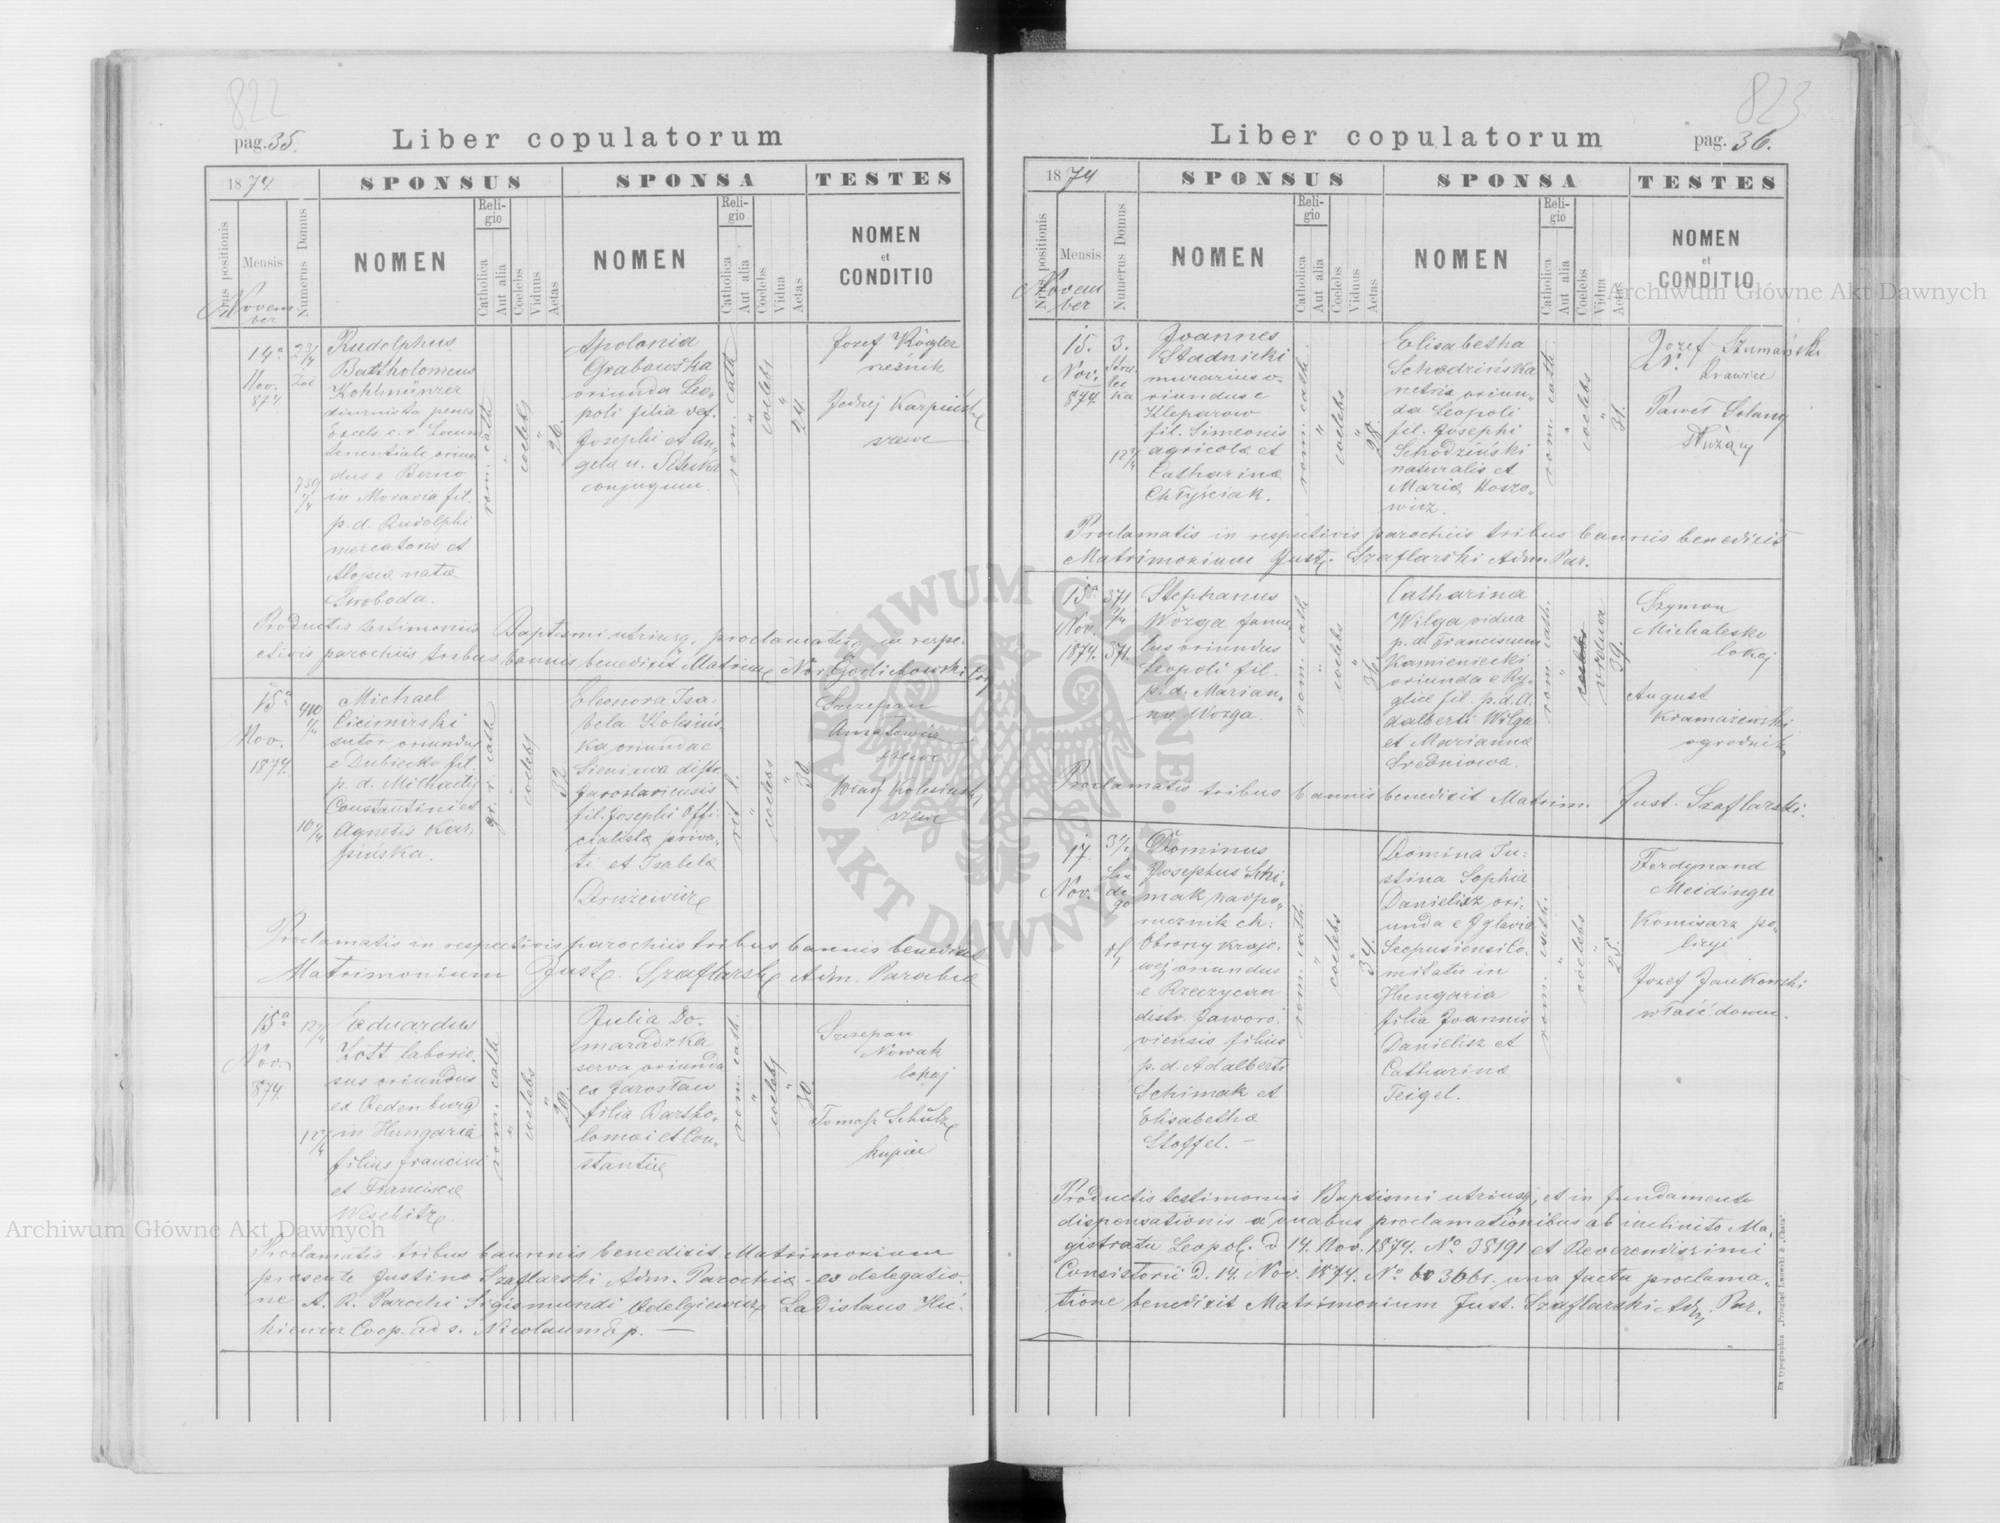 822
pag. 35.
Liber copulatorum
1874
SPONSUS
SPONSA
TESTES
Nrus positionis
Mensis
Novem
ber
Numerus Domus
NOMEN
Reli-
gio
Catholica
Aut alia
Coelebs
Viduus
Aetas
NOMEN
Reli-
gio
Catholica
Aut alia
Coelebs
Vidua
Aetas
NOMEN
et
CONDITIO
14a
Nov.
874
Rudolphus
Bartholomeus
Kohlmünzer
diurnista penes
Excels. c. r. Locum
tenentiale oriun
dus e Berno
in Moravia fil.
p. d. Rudolphi
mercatoris et
Alojsæ natæ
Swoboda.
rom. cath
coelebs
26.
Apolonia
Grabowska
oriunda Leo-
poli filia def.
Josephi et An-
gela n. Sztuka
conjugum.
rom. cath
coelebs
24.
Josef Kögler
rzeźnik
Jędrzej Karpiński
szewc
Productis testimoniis Baptismi utriusq, proclamatisq in respe-
ctivis parochiis tribus bannis benedixit Matrim.
15a
Nov.
1874.
410
10
Michael
Cicimirski
sutor oriundus
e Dubiecko fil.
p. d. Michaelis
Constantini et
Agnetis Kar-
pińska.
gr. r. cath
coelebs
32
Eleonora Isa-
bela Kolesińs-
ka oriunda e
Sieniawa distr.
Jaroslaviensis
fil. Josephi Offi-
cialistæ priva-
ti et Isabelæ
Druzewicz
coelebs
Szczepan
szewc
Kolesiński
szewc
Proclamatis in respectivis parochiis tribus bannis benedixit
Matrimonium Just. Szaflarski Adm. Parochiæ
15a
Nov.
874.
Eduardus
Zott laborio-
sus oriundus
ex Oedenburg
in Hungaria
filius Francisci
et Franciscæ
rom. cath
coelebs
29.
Julia Do-
maradzka
serva oriunda
ex Jarosław
filia Bartho-
lomæi et Con-
stantiæ
rom. cath.
coelebs
30.
Szczepan
Nowak
lokaj
Tomasz Schulz
kupiec
Proclamatis tribus bannis benedixit Matrimonium
præsente Justino Szaflarski Adm. Parochiæ - ex delegatio-
ne A. R. Parochi Sigismundi Odelgiewicz Ladislaus
Coop. ad s. Nicolaum Ep. —
823
pag. 36.
Liber copulatorum
1874
SPONSUS
SPONSA
TESTES
Nrus positionis
Mensis
Novem
ber
Numerus Domus
NOMEN
Reli-
gio
Catholica
Aut alia
Coelebs
Viduus
Aetas
NOMEN
Reli-
gio
Catholica
Aut alia
Coelebs
Vidua
Aetas
NOMEN
et
CONDITIO
15.
Nov.
874.
3.
Joannes
Stadnicki
murarius o-
riundus e
Kleparow
fil. Simeonis
agricolæ et
Catharinæ
Chłyściak.
rom. cath.
coelebs
28.
Elisabetha
Schodzińska
netrix oriun-
da Leopoli
fil. Josephi
Schodziński
naturalis et
Mariæ Koszo-
wicz.
rom. cath.
coelebs
31.
Jozef Szumański
krawiec
Paweł
Służący
Proclamatis in respectivis parochiis tribus bannis benedixit
Matrimonium Just. Szaflarski Adm. Par.
15a
Nov.
1874.
371
371.
Stephanus
Wozga famu-
lus oriundus
Leopoli fil.
p. d. Marian-
næ Wozga.
rom. cath
coelebs
Catharina
Wilga vidua
p. d. Franciscum
Kamieniecki
oriunda e Ry-
glice fil. p. d. A-
dalberti Wilga
et Mariannæ
Sredniowa.
rom. cath.
vidua
39.
Szymon
Michalesko
lokaj
August
Kramarzewski
ogrodnik
Proclamatis tribus bannis benedixit Matrim. Just. Szaflarski.
17.
Nov.
Dominus
Josephus Schi-
mak nadpo-
rucznik ck:
Obrony krajo-
wej oriundus
e Rzeczycan
distr. Jaworo-
viensis filius
p. d. Adalberti
Schimak et
Elisabethæ
Stoffel. —
rom. cath.
coelebs
34.
Domina Ju-
stina Sophia
Danielisz ori-
unda e Iglavia
Scepusiensi Co-
mitatu in
Hungaria
filia Joannis
Danielisz et
Catharinæ
Teigel.
rom. cath.
coelebs
25.
Ferdynand
Meidinger
Komisarz po-
licyi
Jozef Jankowski
właść. domu.
Productis testimoniis Baptismi utriusq, et in fundamento
dispensationis a duabus proclamationibus ab inclinito Ma-
gistratu Leopol. d 14. Nov. 1874. No 38191 et Reverendissimi
Consistorii d. 14. Nov. 1874. No una facta proclama-
tione benedixit Matrimonium Just. Szaflarski Adm. Par.
Ex typographia „Przegląd Lwowski &
Archiwum Główne Akt Dawnych
Archiwum Główne Akt Dawnych
ARCHIWUM GŁÓWNE
AKT DAWNYCH